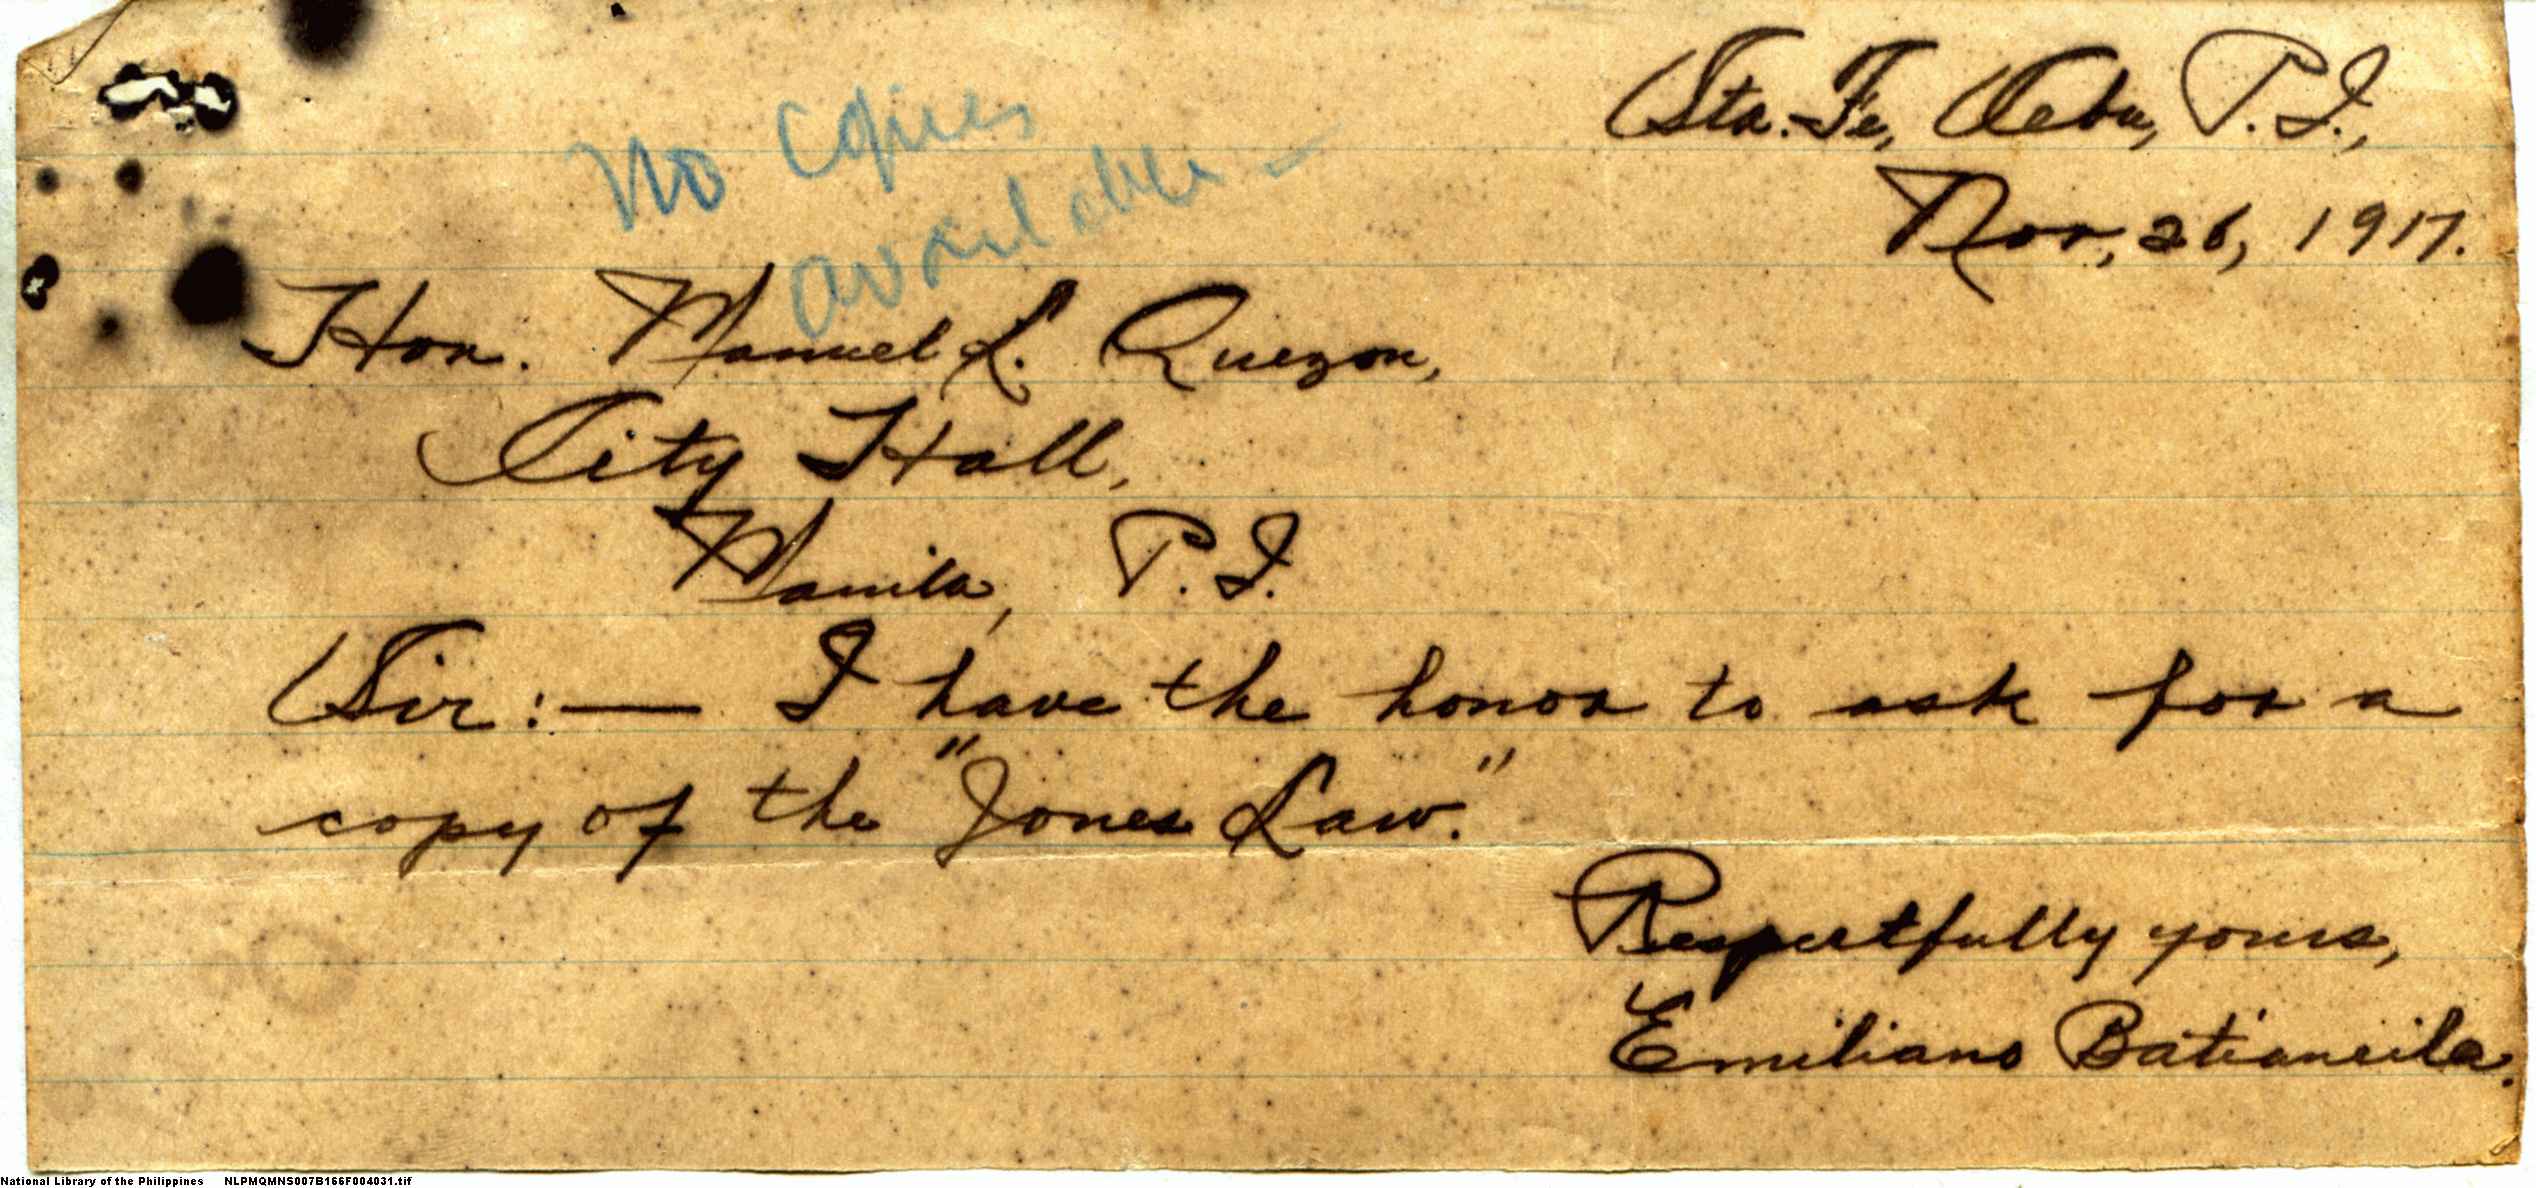 No copies
available -
Sta. Fe, Cebu, P.I.,
Nov, 26, 1917.
Hon. Manuel L. Quezon,
City Hall,
Manila, P.I.
Sir:— I have the honor to ask for a
copy of the "Jones Law."
Respectfully yours,
Emiliano Batiancila.
National Library of the Philippines NLPMQMNS007B166F004031.tif